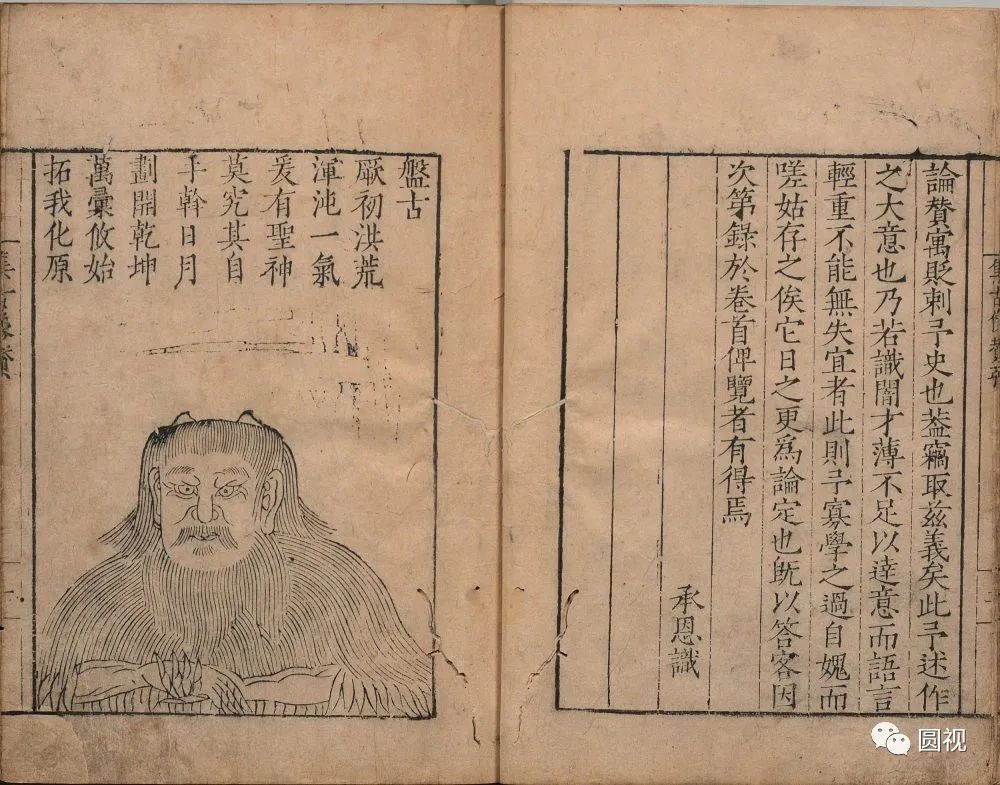 論贊寓貶刺予史也葢竊取兹義矣此予述作
之大意也乃若識闇才薄不足以達意而語言
輕重不能無失宜者此則予寡學之過自媿而
嗟姑存之俟它日之更爲論定也旣以答客因
次第錄於卷首俾覽者有得焉
承恩識
盤古
厥初洪荒
渾沌一氣
爰有聖神
莫究其自
手斡日月
劃開乾坤
萬彙攸始
拓我化原
圆视